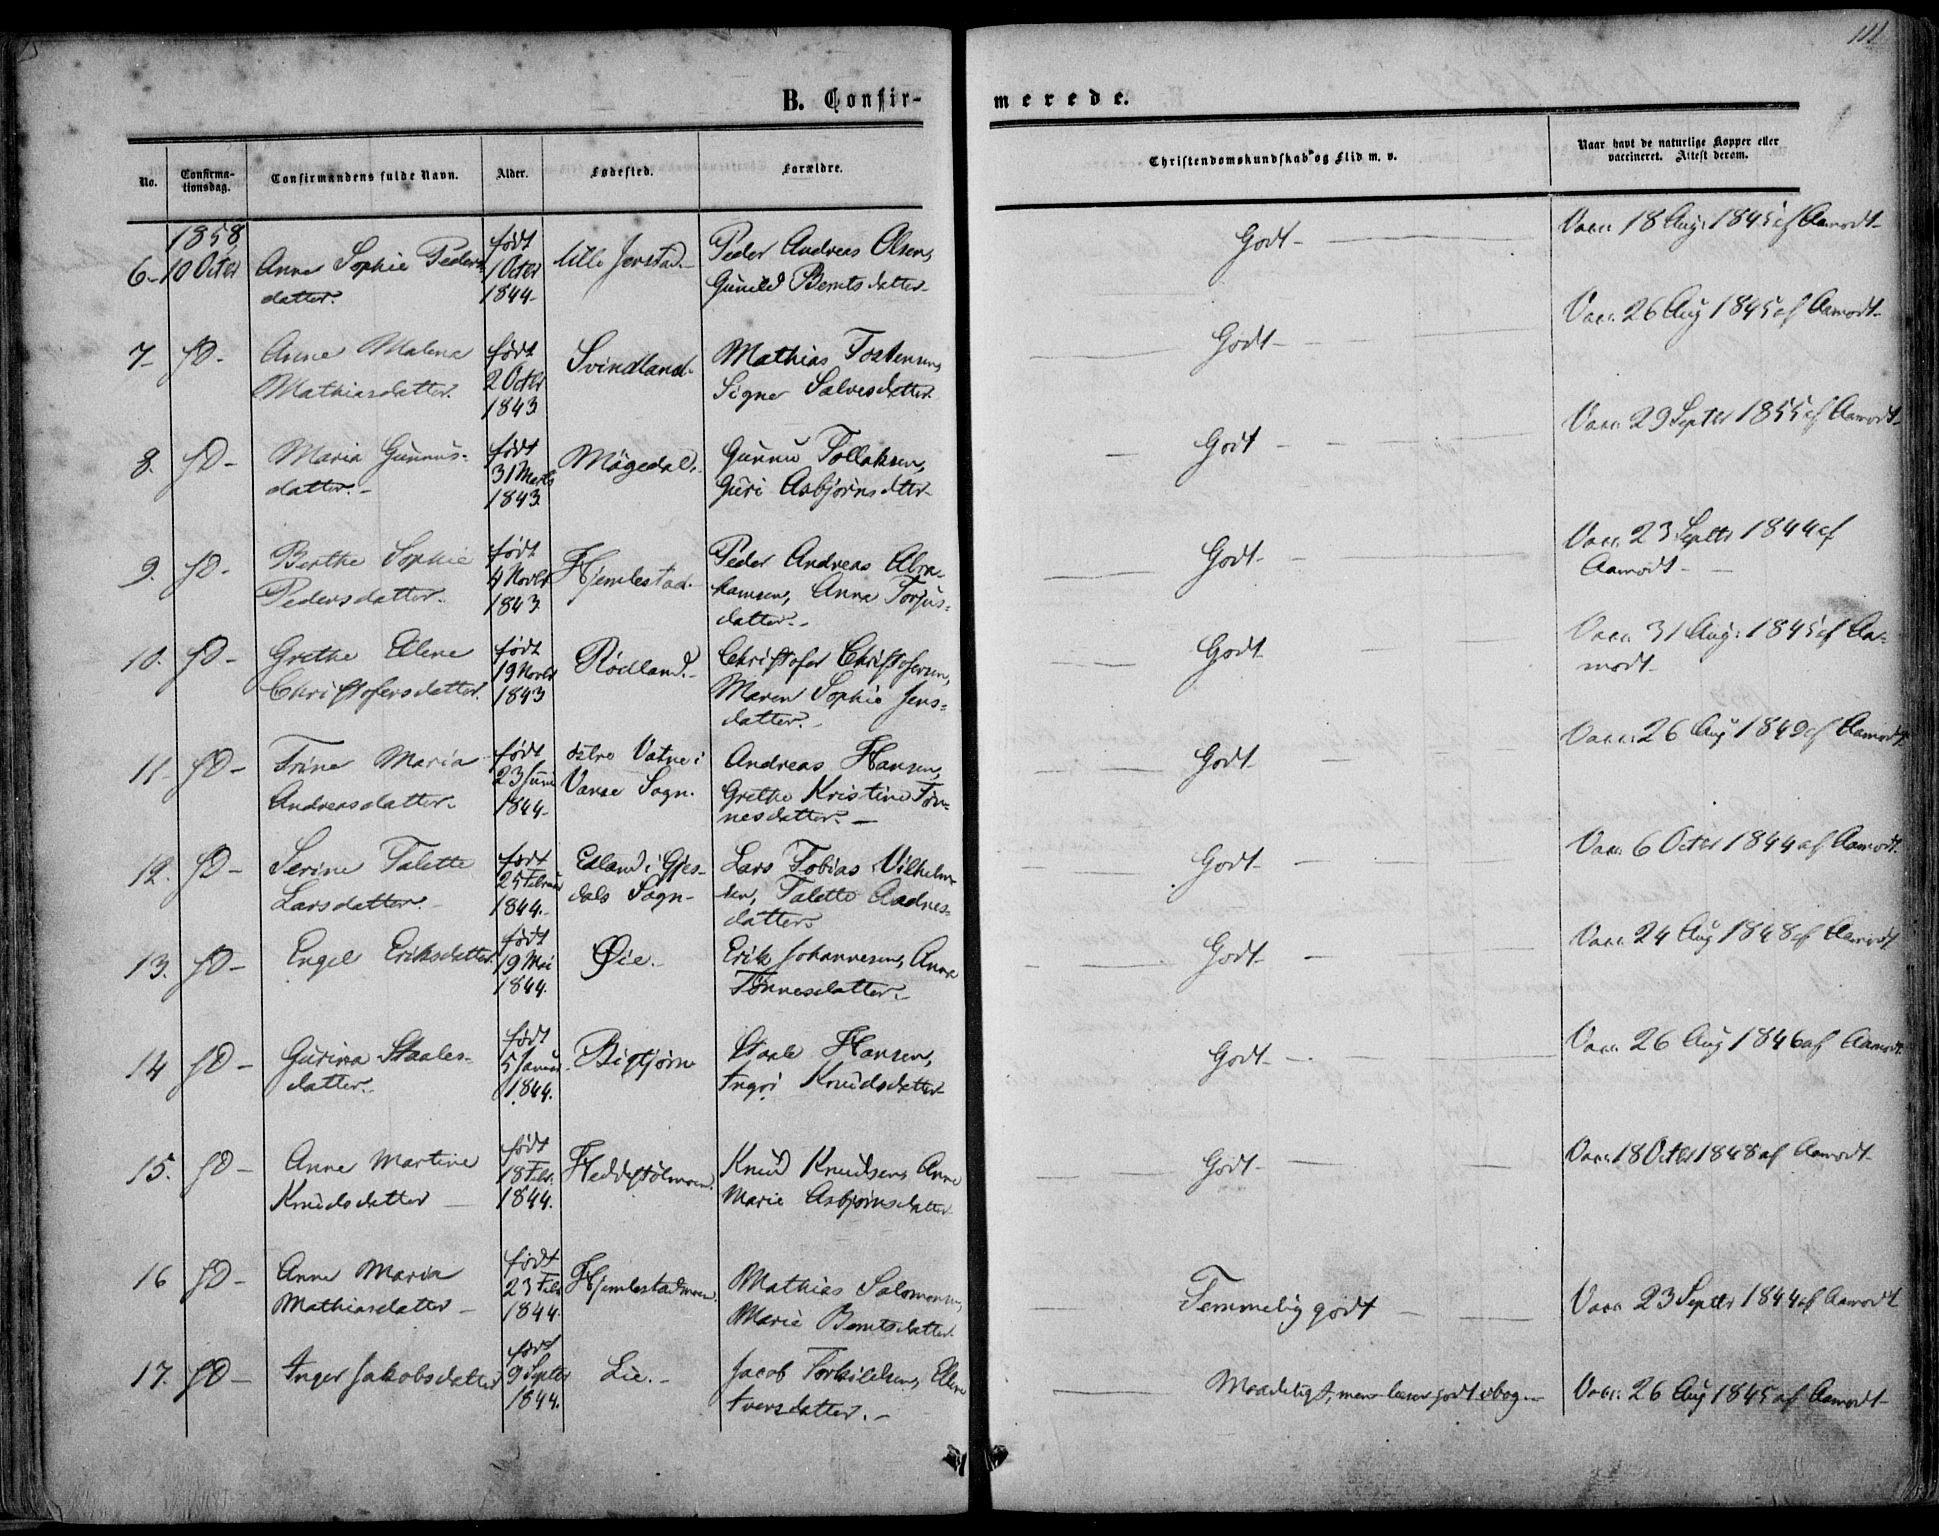 111
B. Confirmerede.
No. Confirmationsdag. Confirmandens fulde Navn. Alder. Fødested. Forældre. Christendomskundskab og Flid m. v. Naar havt de naturlige Kopper eller vaccineret. Attest derom.
1858
6- 10 Octbr Anne Sophie Pedersdatter. født 1 Octbr 1844- Lille Jerstad.- Peder Andreas Olsen, Gunild Berntsdatter- Godt- Vacc. 18 Aug: 1845 af Aamodt-
7- do- Anne Malena Mathiasdatter. født 2 Octbr 1843 Svindland- Mathias Tostensen, Signe Salvesdatter Godt- Vacc. 26 Aug 1845 af Aamodt-
8. do- Maria Gunnusdatter.- født 31 Marts 1843. Mögedal. Gunnu Tollaksen, Guri Asbjørnsdtter- Godt Vacc. 29 Septbr 1855 af Aamodt-
9. do- Berthe Sophie Pedersdatter. født 4 Novbr 1843 Hjemlestad- Peder Andreas Abrahamsen, Anna Torjusdatter.- Godt- Vacc. 23 Septbr 1844 af Aamodt-
10. do- Grethe Elene Christofersdatter. født 19 Novbr 1843 Rødland.- Christofer Christofersen, Maren Sophie Jensdatter.- Godt- Vacc. 31 Aug: 1845 af Aamodt-
11- do- Trine Maria Andreasdatter. født 23 Juni 1844- østre Vatne i Vanse Sogn. Andreas Hansen, Grethe Kristine Tønnesdatter.- Godt- Vacc. 26 Aug 1849 af Aamodt
12. do- Serine Talette Larsdatter. født 25 Februar 1844.- Edland i Gjesdals Sogn- Lars Tobias Vilhelmsen, Talette Aadnesdatter Godt- Vacc. 6 Octbr 1844 af Aamodt.
13. do- Engel Eriksdatter født 19 Mai 1844. Øie.- Erik Johannesen, Anna Tønnesdatter.- Godt- Vacc. 24 Aug 1848 af Aamodt
14 do- Gurina Staalesdatter. født 5 Januar 1844. Bigtjørn Staale Hansen, Ingri Knudsdatter Godt- Vacc. 26 Aug 1846 af Aamodt.
15. do- Anne Martine Knudsdatter- født 18 Febr. 1844. Heddestølmoen. Knud Knudsen, Anne Marie Asbjørnsdatter Godt- Vacc. 18 Octbr 1848 af Aamodt-
16 do- Anne Maria Mathiasdatter- født 23 Febr 1844. Hjemlestadmoen. Mathias Salomonsen, Marie Berntsdatter Temmelig godt- Vacc. 23 Septbr 1844 af Aamodt
17. do- Inger Jakobsdatter født 9 Septbr 1844. Lie.- Jacob Torkildsen, Ellen Iversdatter.- Maadeligt, men læser godt i bog.- Vacc. 26 Aug 1845 af Aamodt-